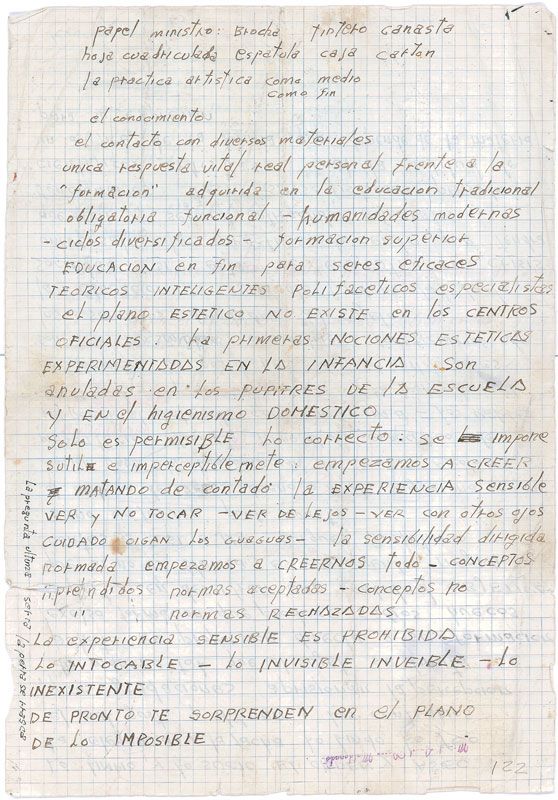 papel ministro: Brocha tintero canasta
hoja cuadriculada espatula caja carton
la practica artistica como medio
como fin
el conocimiento
el contacto con diversos materiales
unica respuesta vital real personal frente a la
"formacion" adquirida en la educacion tradicional
obligatoria funcional - humanidades modernas
- ciclos diversificados - formacion superior
EDUCACION en fin para seres eficaces
TEORICOS INTELIGENTES POLIFACETICOS especialistas
el plano ESTETICO NO EXISTE en los CENTROS
OFICIALES. La primeras NOCIONES ESTETICAS
EXPERIMENTADAS EN LA INFANCIA Son
anuladas en LOS PUPITRES DE LA ESCUELA
Y EN el higienismo DOMESTICO
Solo es permisible lo correcto. Se impone
sutil e imperceptiblemete: empezamos A CREER
MATANDO de contado la EXPERIENCIA Sensible
VER y NO TOCAR - VER DE LEJOS - VER con otros ojos
CUIDADO OIGAN LOS GUAGUAS - la sensibilidad dirigida
normada empezamos a CREERNOS todo - CONCEPTOS
normas aceptadas - conceptos no
" normas RECHAZADAS
LA experiencia SENSIBLE ES PROHIBIDA
LO INTOCABLE - LO INVISIBLE - LO
INEXISTENTE
DE PRONTO TE SORPRENDEN en el PLANO
DE LO IMPOSIBLE
La pregunta ultima sobre la
122